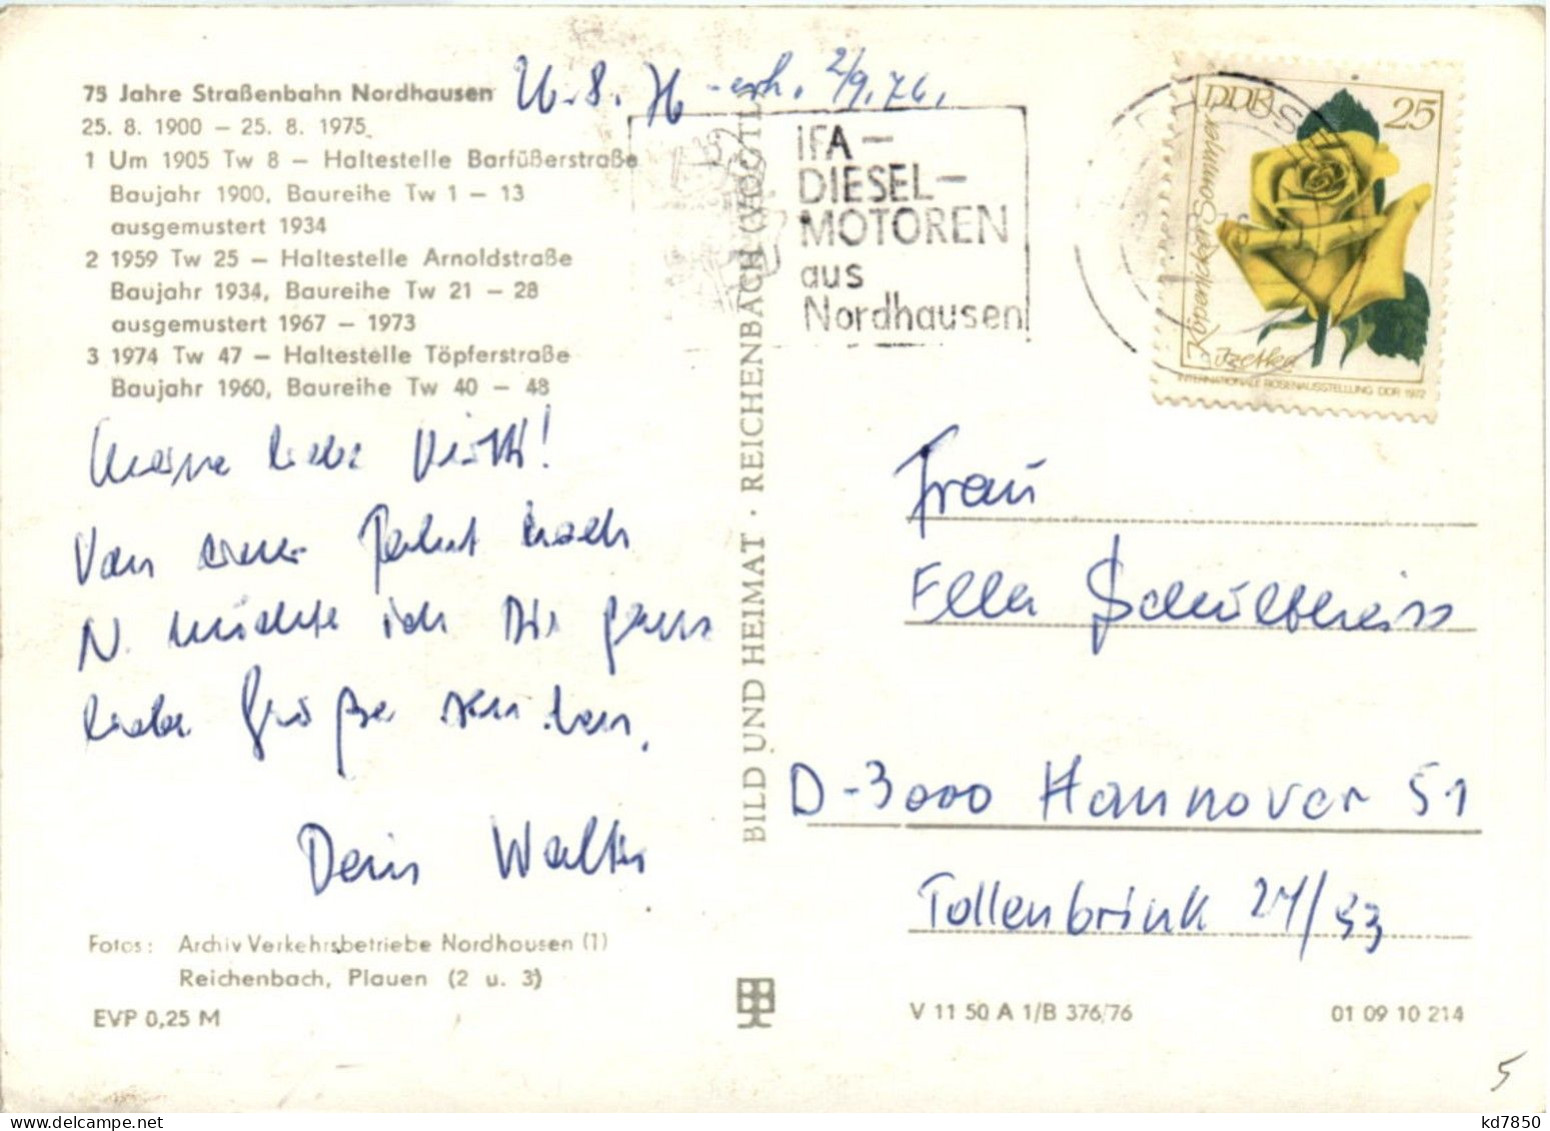 75 Jahre Straßenbahn Nordhausen
25. 8. 1900 – 25. 8. 1975
1 Um 1905 Tw 8 – Haltestelle Barfüßerstraße
Baujahr 1900, Baureihe Tw 1 – 13
ausgemustert 1934
2 1959 Tw 25 – Haltestelle Arnoldstraße
Baujahr 1934, Baureihe Tw 21 – 28
ausgemustert 1967 – 1973
3 1974 Tw 47 – Haltestelle Töpferstraße
Baujahr 1960, Baureihe Tw 40 – 48
26.8.76 - erh. 2/9.76.
Meine liebe
Von einer Fahrt nach
N. möchte ich Dir ganz
liebe Grüße senden.
Dein Walter
Fotos: Archiv Verkehrsbetriebe Nordhausen (1)
Reichenbach, Plauen (2 u. 3)
EVP 0,25 M
BILD UND HEIMAT · REICHENBACH (VOGTL
IFA –
DIESEL –
MOTOREN
aus
Nordhausen
DDR 25
Köpenicker Sommer
Izetka
INTERNATIONALE ROSENAUSSTELLUNG DDR 1972
Frau
Ella Schultheiss
D-3000 Hannover 51
Tollenbrink
V 11 50 A 1/B 376/76
01 09 10 214
5
kd7850